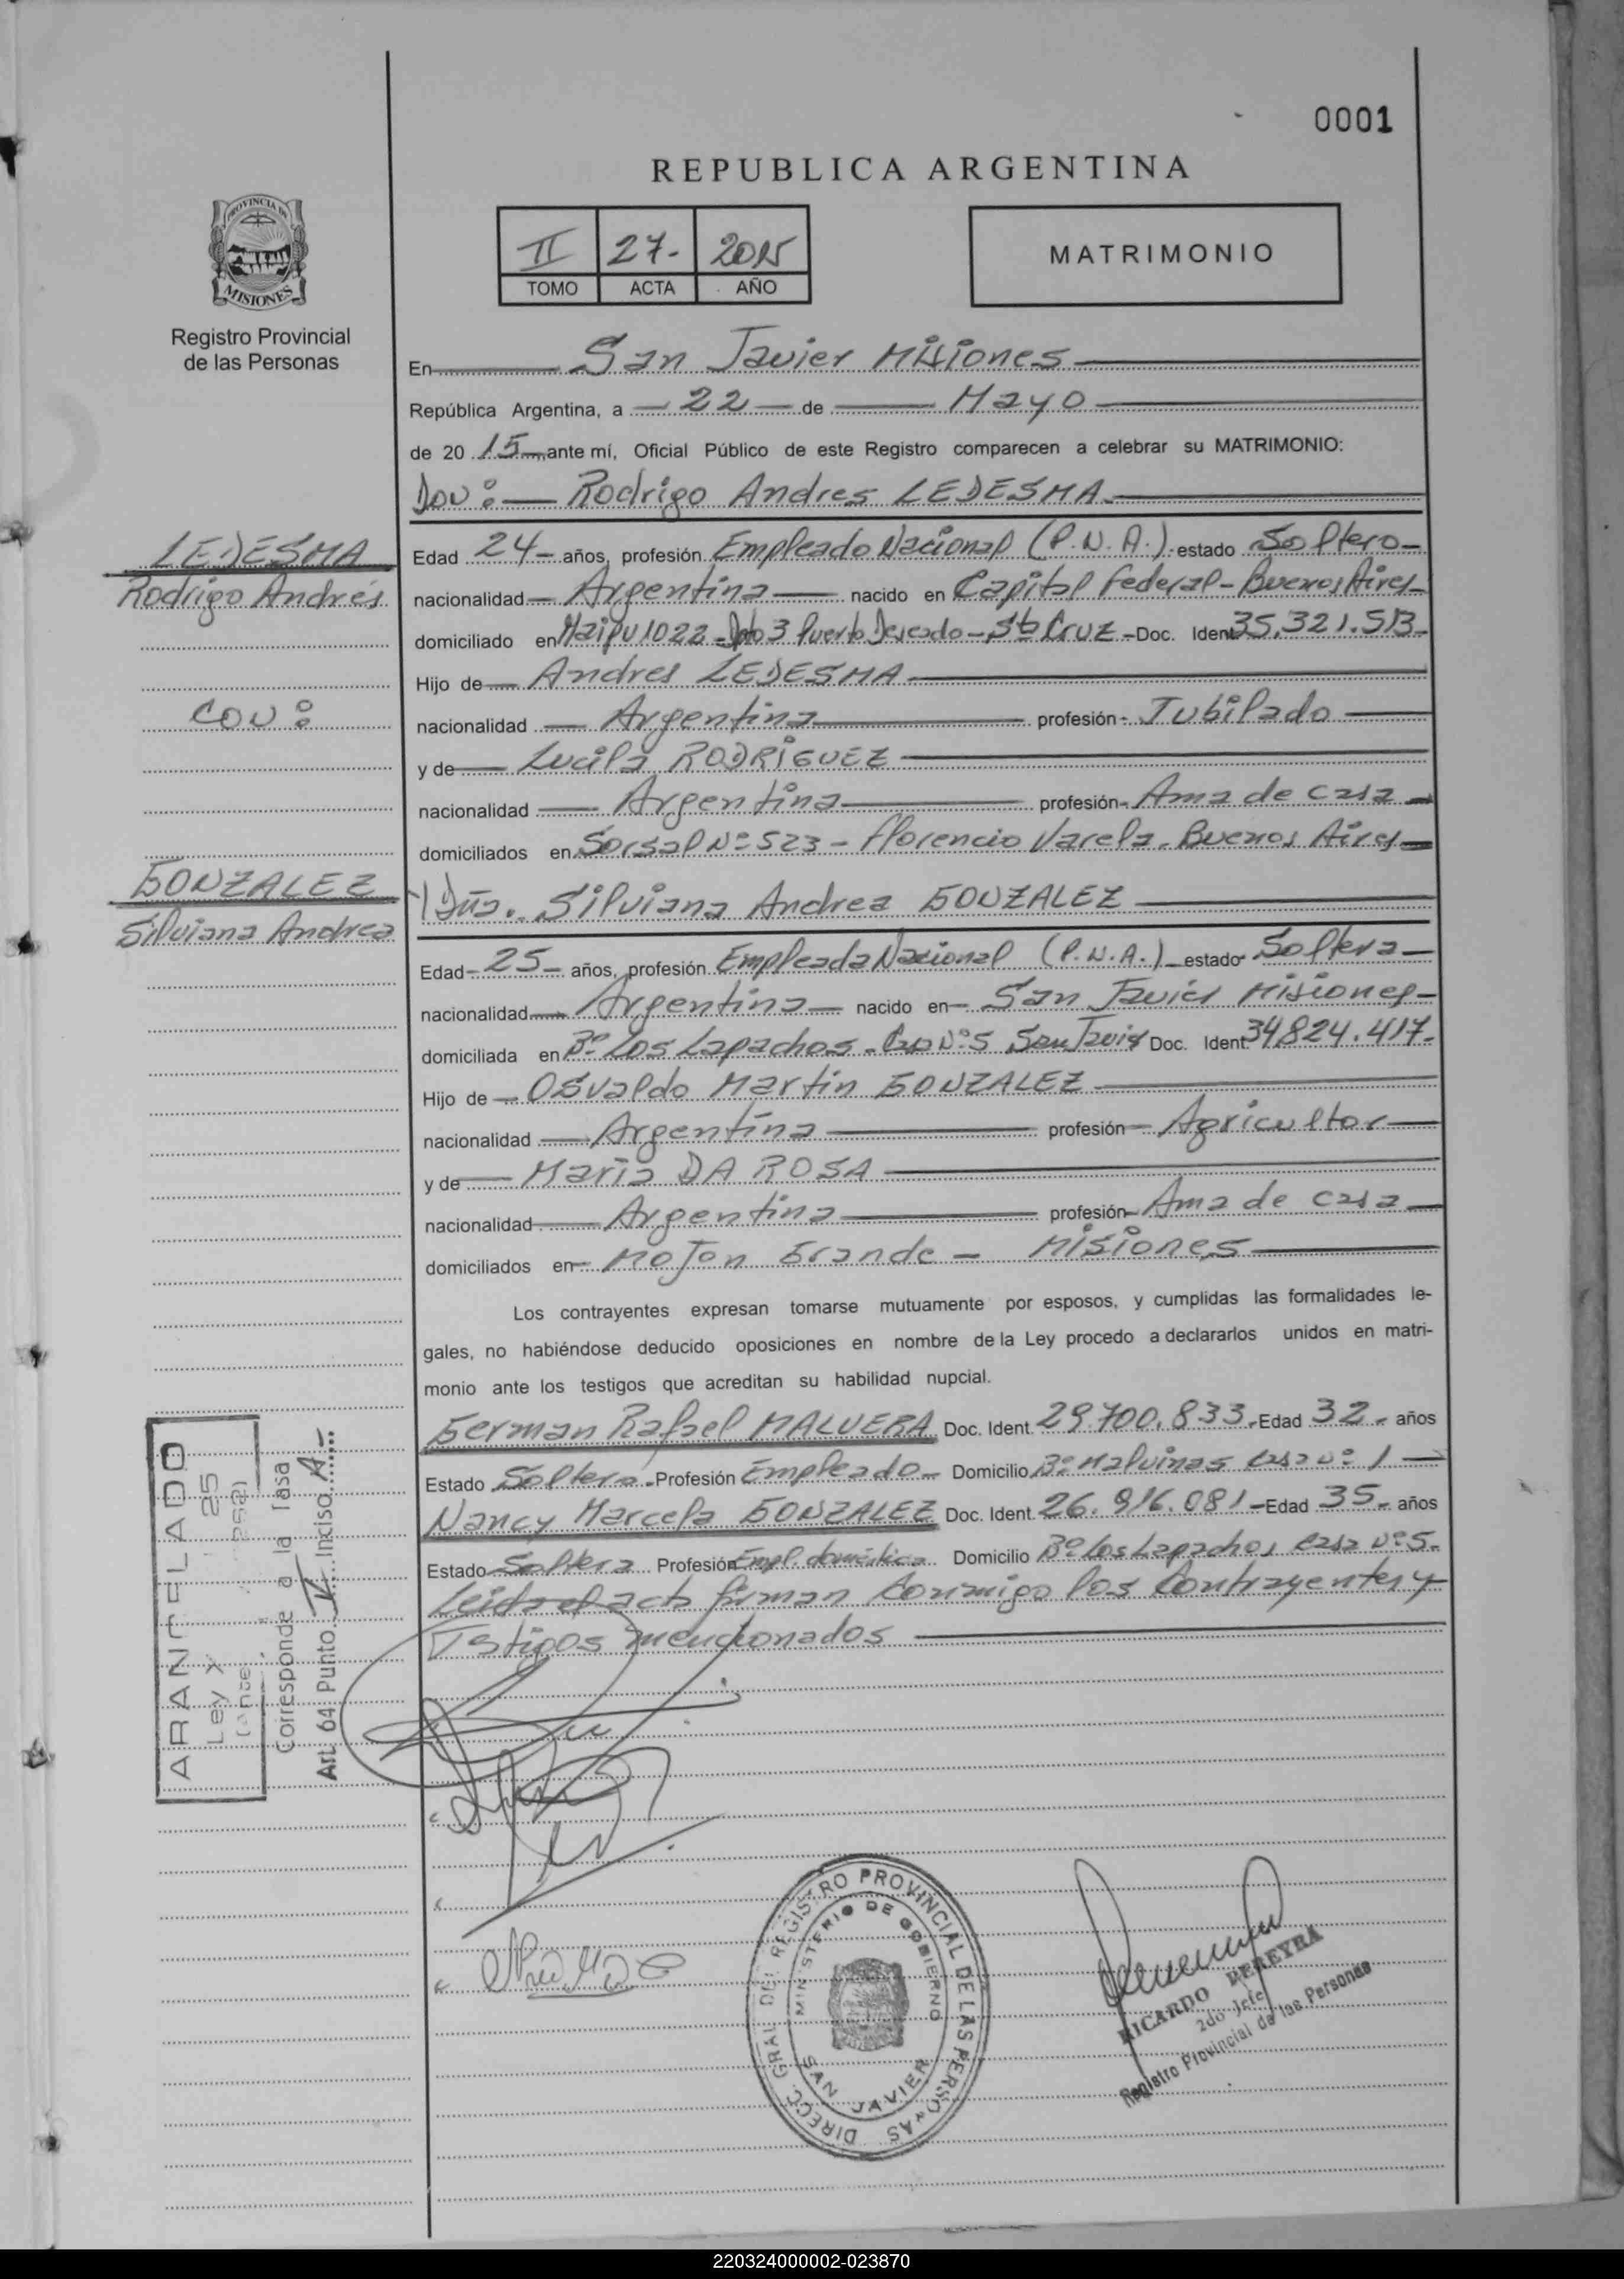 0001
REPUBLICA ARGENTINA
PROVINCIA DE
MISIONES
Registro Provincial
de las Personas
II 27.- 2015
TOMO ACTA AÑO
MATRIMONIO
En San Javier Misiones
República Argentina, a 22 de Mayo
de 20 15 ante mí, Oficial Público de este Registro comparecen a celebrar su MATRIMONIO:
Don: Rodrigo Andres LEDESMA
LEDESMA
Rodrigo Andrés
con:
GONZALEZ
Silviana Andrea
Edad 24 años, profesión Empleado Nacional (P.N.A.) estado Soltero
nacionalidad Argentina nacido en Capital Federal - Buenos Aires
domiciliado en Maipu 1022 - Dpto 3 Puerto Deseado - Sta Cruz - Doc. Ident 35.321.513
Hijo de Andres LEDESMA
nacionalidad Argentina profesión Jubilado
y de Lucila RODRIGUEZ
nacionalidad Argentina profesión Ama de casa
domiciliados en Sorsal Nº 523 - Florencio Varela. Buenos Aires
y Dña. Silviana Andrea GONZALEZ
Edad 25 años, profesión Empleada Nacional (P.N.A.) estado Soltera
nacionalidad Argentina nacido en San Javier Misiones
domiciliada en Bº Los Lapachos - Casa Nº 5 San Javier Doc. Ident 34.824.417.
Hijo de Osvaldo Martin GONZALEZ
nacionalidad Argentina profesión Agricultor
y de Maria DA ROSA
nacionalidad Argentina profesión Ama de casa
domiciliados en Mojon Grande - Misiones
Los contrayentes expresan tomarse mutuamente por esposos, y cumplidas las formalidades le-
gales, no habiéndose deducido oposiciones en nombre de la Ley procedo a declararlos unidos en matri-
monio ante los testigos que acreditan su habilidad nupcial.
German Rafael MALVERA Doc. Ident 29.700.833 Edad 32 años
Estado Soltero Profesión Empleado Domicilio Bº Malvinas casa Nº 1
Nancy Marcela GONZALEZ Doc. Ident. 26.916.081 Edad 35 años
Estado Soltera Profesión Empl. doméstica Domicilio Bº Los Lapachos casa Nº 5.
Leida el acta firman conmigo los Contrayentes y
Testigos mencionados
ARANCELADO
Ley X 25
Corresponde a la Tasa
Art. 64 Punto IV Inciso A
DIRECC. GRAL. DEL REGISTRO PROVINCIAL DE LAS PERSONAS
MINISTERIO DE GOBIERNO
SAN JAVIER
RICARDO PEREYRA
2do Jefe
Registro Provincial de las Personas
220324000002-023870